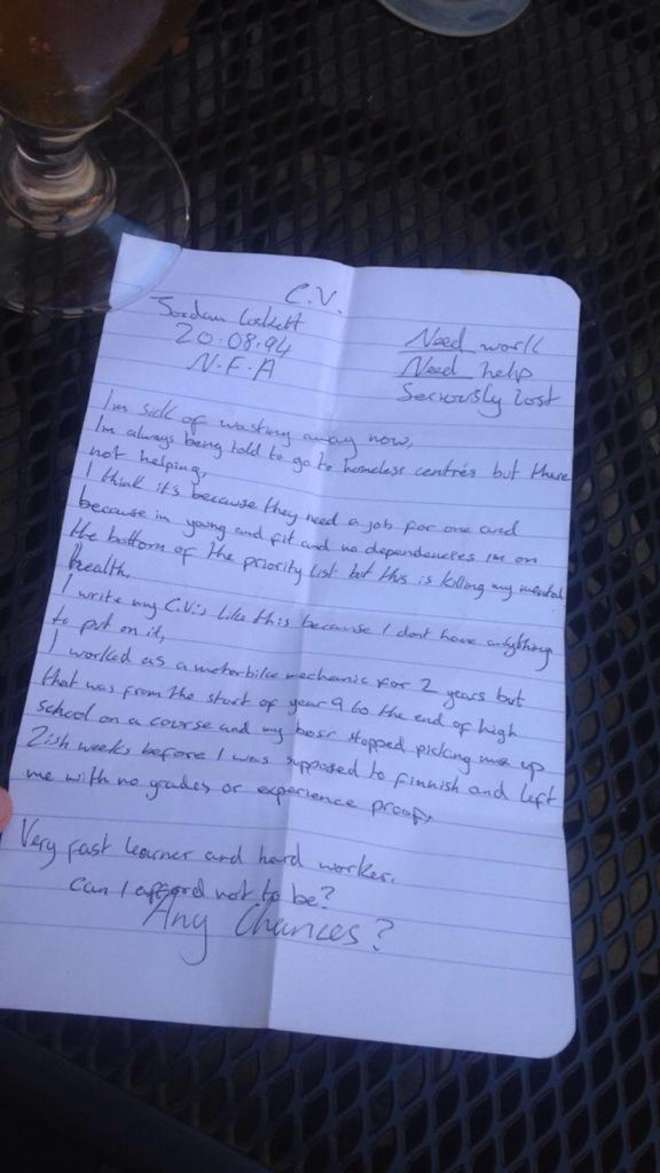 C.V.
Jordan Lockett
20.08.94
N.F.A
Need work
Need help
Seriously lost
Im sick of wasting away now,
Im always being told to go to homeless centres but there
not helping,
I think its because they need a job for one and
because im young and fit and no dependencies im on
the bottom of the priority list but this is killing my mental
health.
I write my C.V.s like this because I dont have anything
to put on it,
I worked as a motorbike mechanic for 2 years but
that was from the start of year 9 to the end of high
school on a course and my boss stopped picking me up
2ish weeks before I was supposed to finnish and left
me with no grades or experience proof,
Very fast learner and hard worker.
Can I afford not to be?
Any Chances?